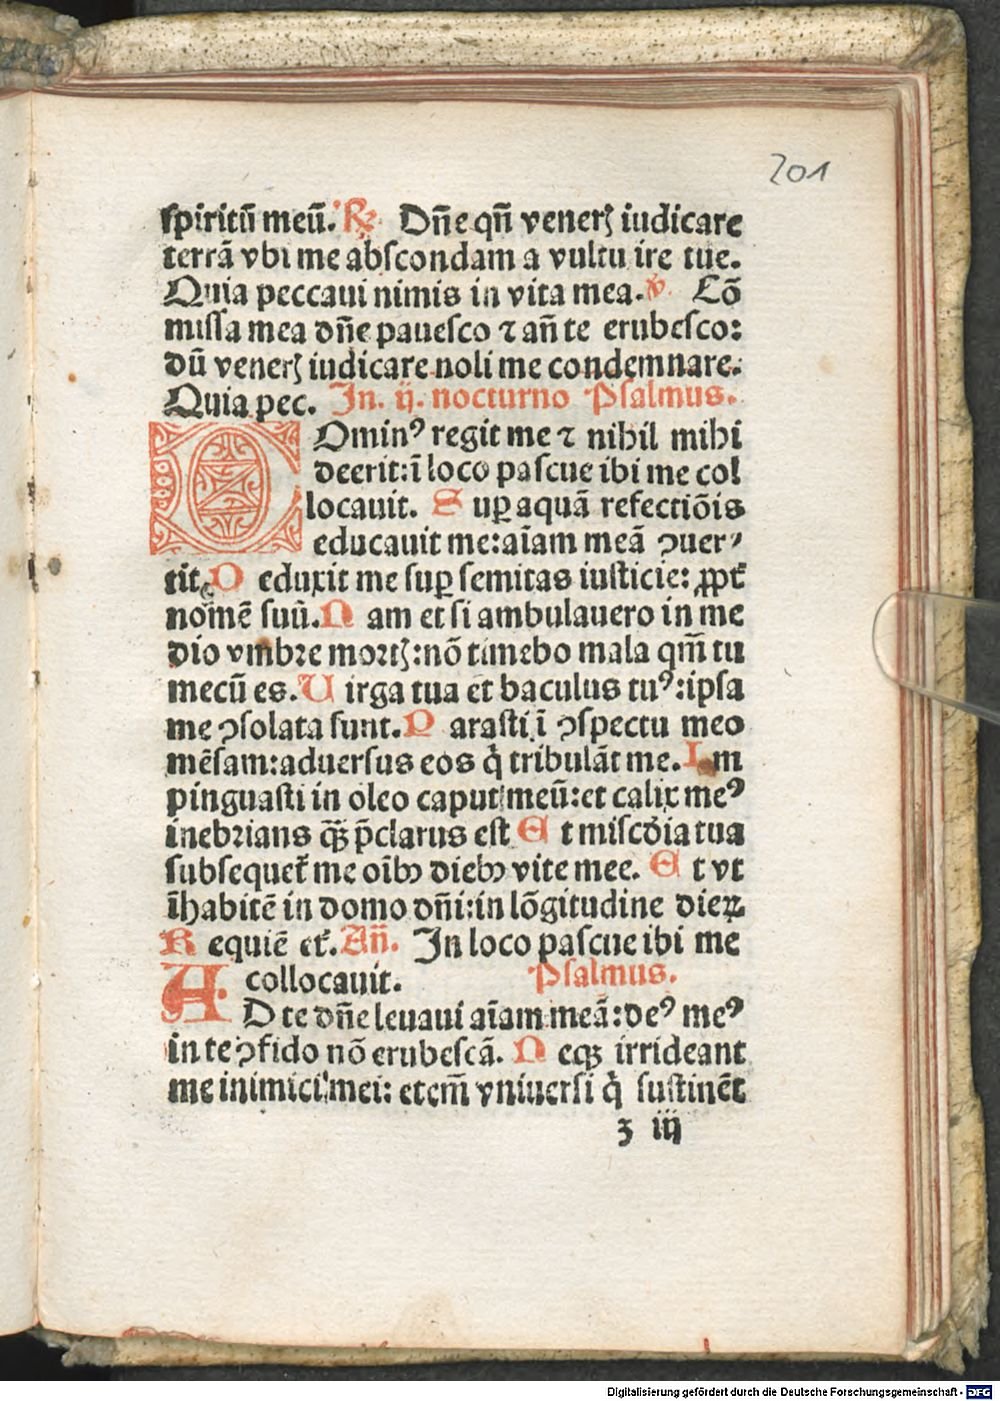 201
spiritū meū. ℟. Dn̄e qn̄ venerꝭ iudicare
terrā vbi me abscondam a vultu ire tue.
Quia peccaui nimis in vita mea. ℣. Cō
missa mea dn̄e pauesco ⁊ an̄ te erubesco:
dū venerꝭ iudicare noli me condemnare.
Quia pec. In. ij. nocturno Psalmus.
DOminꝰ regit me ⁊ nihil mihi
deerit: ī loco pascue ibi me col
locauit. Suꝑ aquā refectiōis
educauit me: aīam meā ꝯuer-
tit. Deduxit me suꝑ semitas iusticie: ꝓpt̄
nomē suū. Nam et si ambulauero in me
dio vmbre mortꝭ: nō timebo mala qm̄ tu
mecū es. Uirga tua et baculus tuꝰ: ipsa
me ꝯsolata sunt. Parasti ī ꝯspectu meo
mēsam: aduersus eos q̇ tribulāt me. Im
pinguasti in oleo caput meū: et calix meꝰ
inebrians qȝ p̄clarus est Et miscd̄ia tua
subsequet̄ me oīb9 dieb9 vite mee. Et vt
īhabitē in domo dn̄i: in lōgitudine dieꝝ
Requiē et̄. An̄. In loco pascue ibi me
collocauit. Psalmus.
AD te dn̄e leuaui aīam meā: deꝰ meꝰ
in te ꝯfido nō erubescā. Neqȝ irrideant
me inimici mei: etem̄ vniuersi q̇ sustinēt
ʒ iij
Digitalisierung gefördert durch die Deutsche Forschungsgemeinschaft - DFG